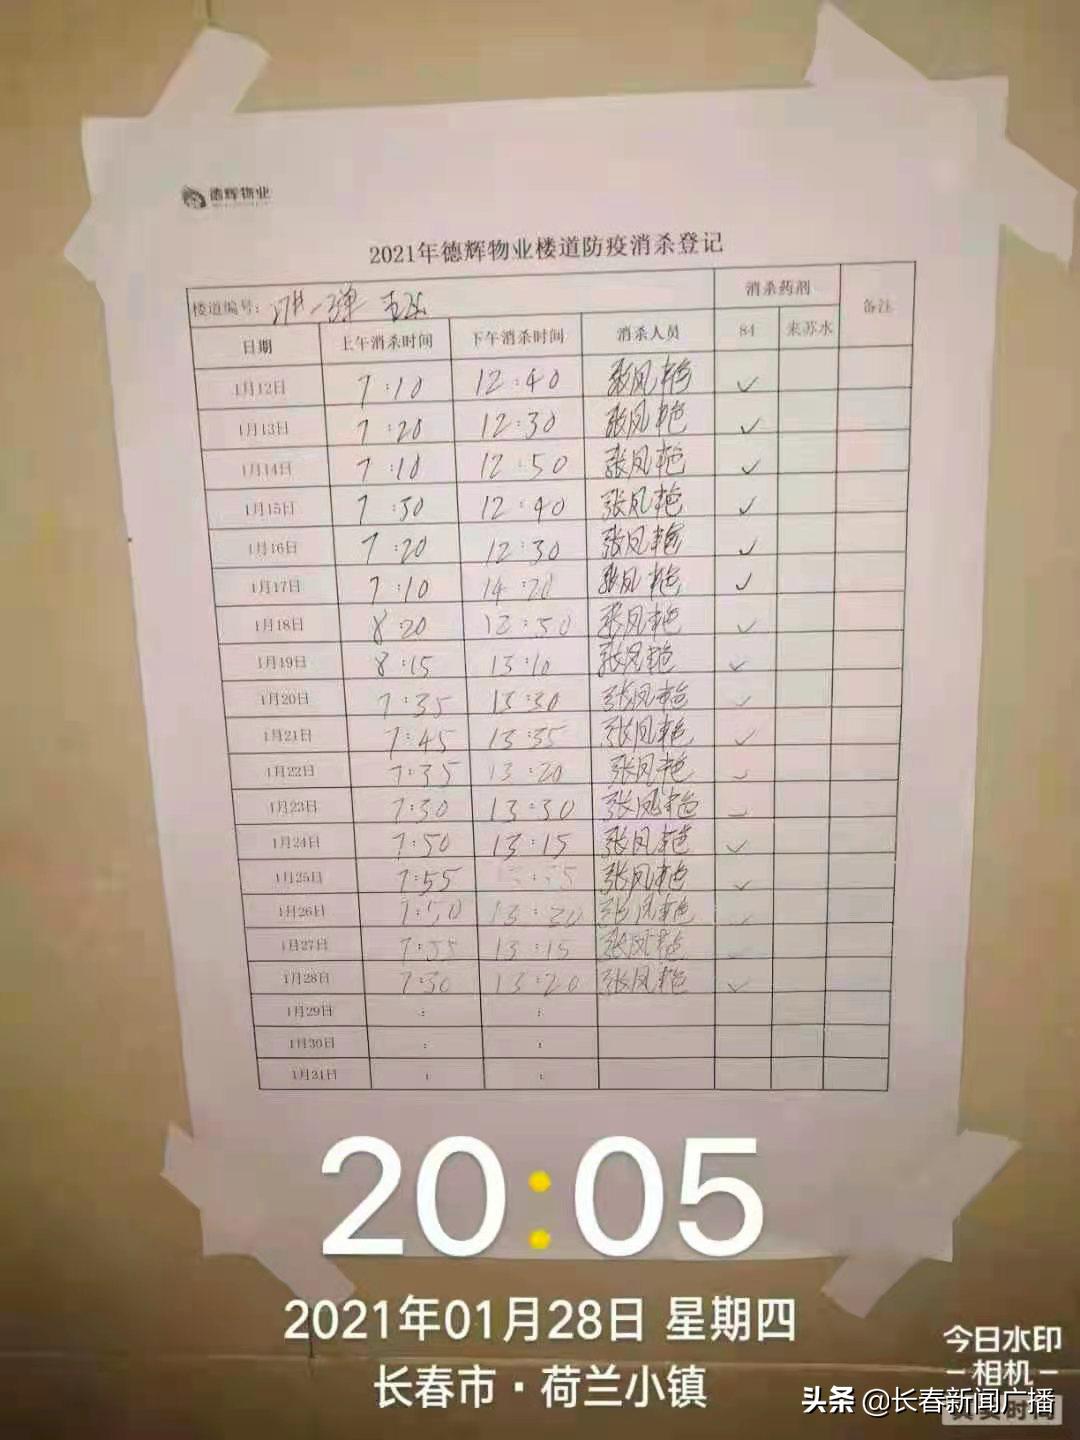 德辉物业
2021年德辉物业楼道防疫消杀登记
楼道编号： 消杀药剂 备注
日期 上午消杀时间 下午消杀时间 消杀人员 84 来苏水
1月12日 7:10 12:40 张凤艳 ✓
1月13日 7:20 12:30 张凤艳 ✓
1月14日 7:10 12:50 张凤艳 ✓
1月15日 7:30 12:40 张凤艳 ✓
1月16日 7:20 12:30 张凤艳 ✓
1月17日 7:10 14:20 张凤艳 ✓
1月18日 8:20 12:50 张凤艳 ✓
1月19日 8:15 13:10 张凤艳 ✓
1月20日 7:35 13:30 张凤艳 ✓
1月21日 7:45 13:35 张凤艳 ✓
1月22日 7:35 13:20 张凤艳 ✓
1月23日 7:30 13:30 张凤艳 ✓
1月24日 7:50 13:15 张凤艳 ✓
1月25日 7:55 张凤艳 ✓
1月26日 7:50 13:20 张凤艳 ✓
1月27日 7:55 13:15 张凤艳
1月28日 7:30 13:20 张凤艳 ✓
1月29日 : :
1月30日 : :
1月31日 : :
20:05
2021年01月28日 星期四
长春市·荷兰小镇
今日水印
相机
头条 @长春新闻广播